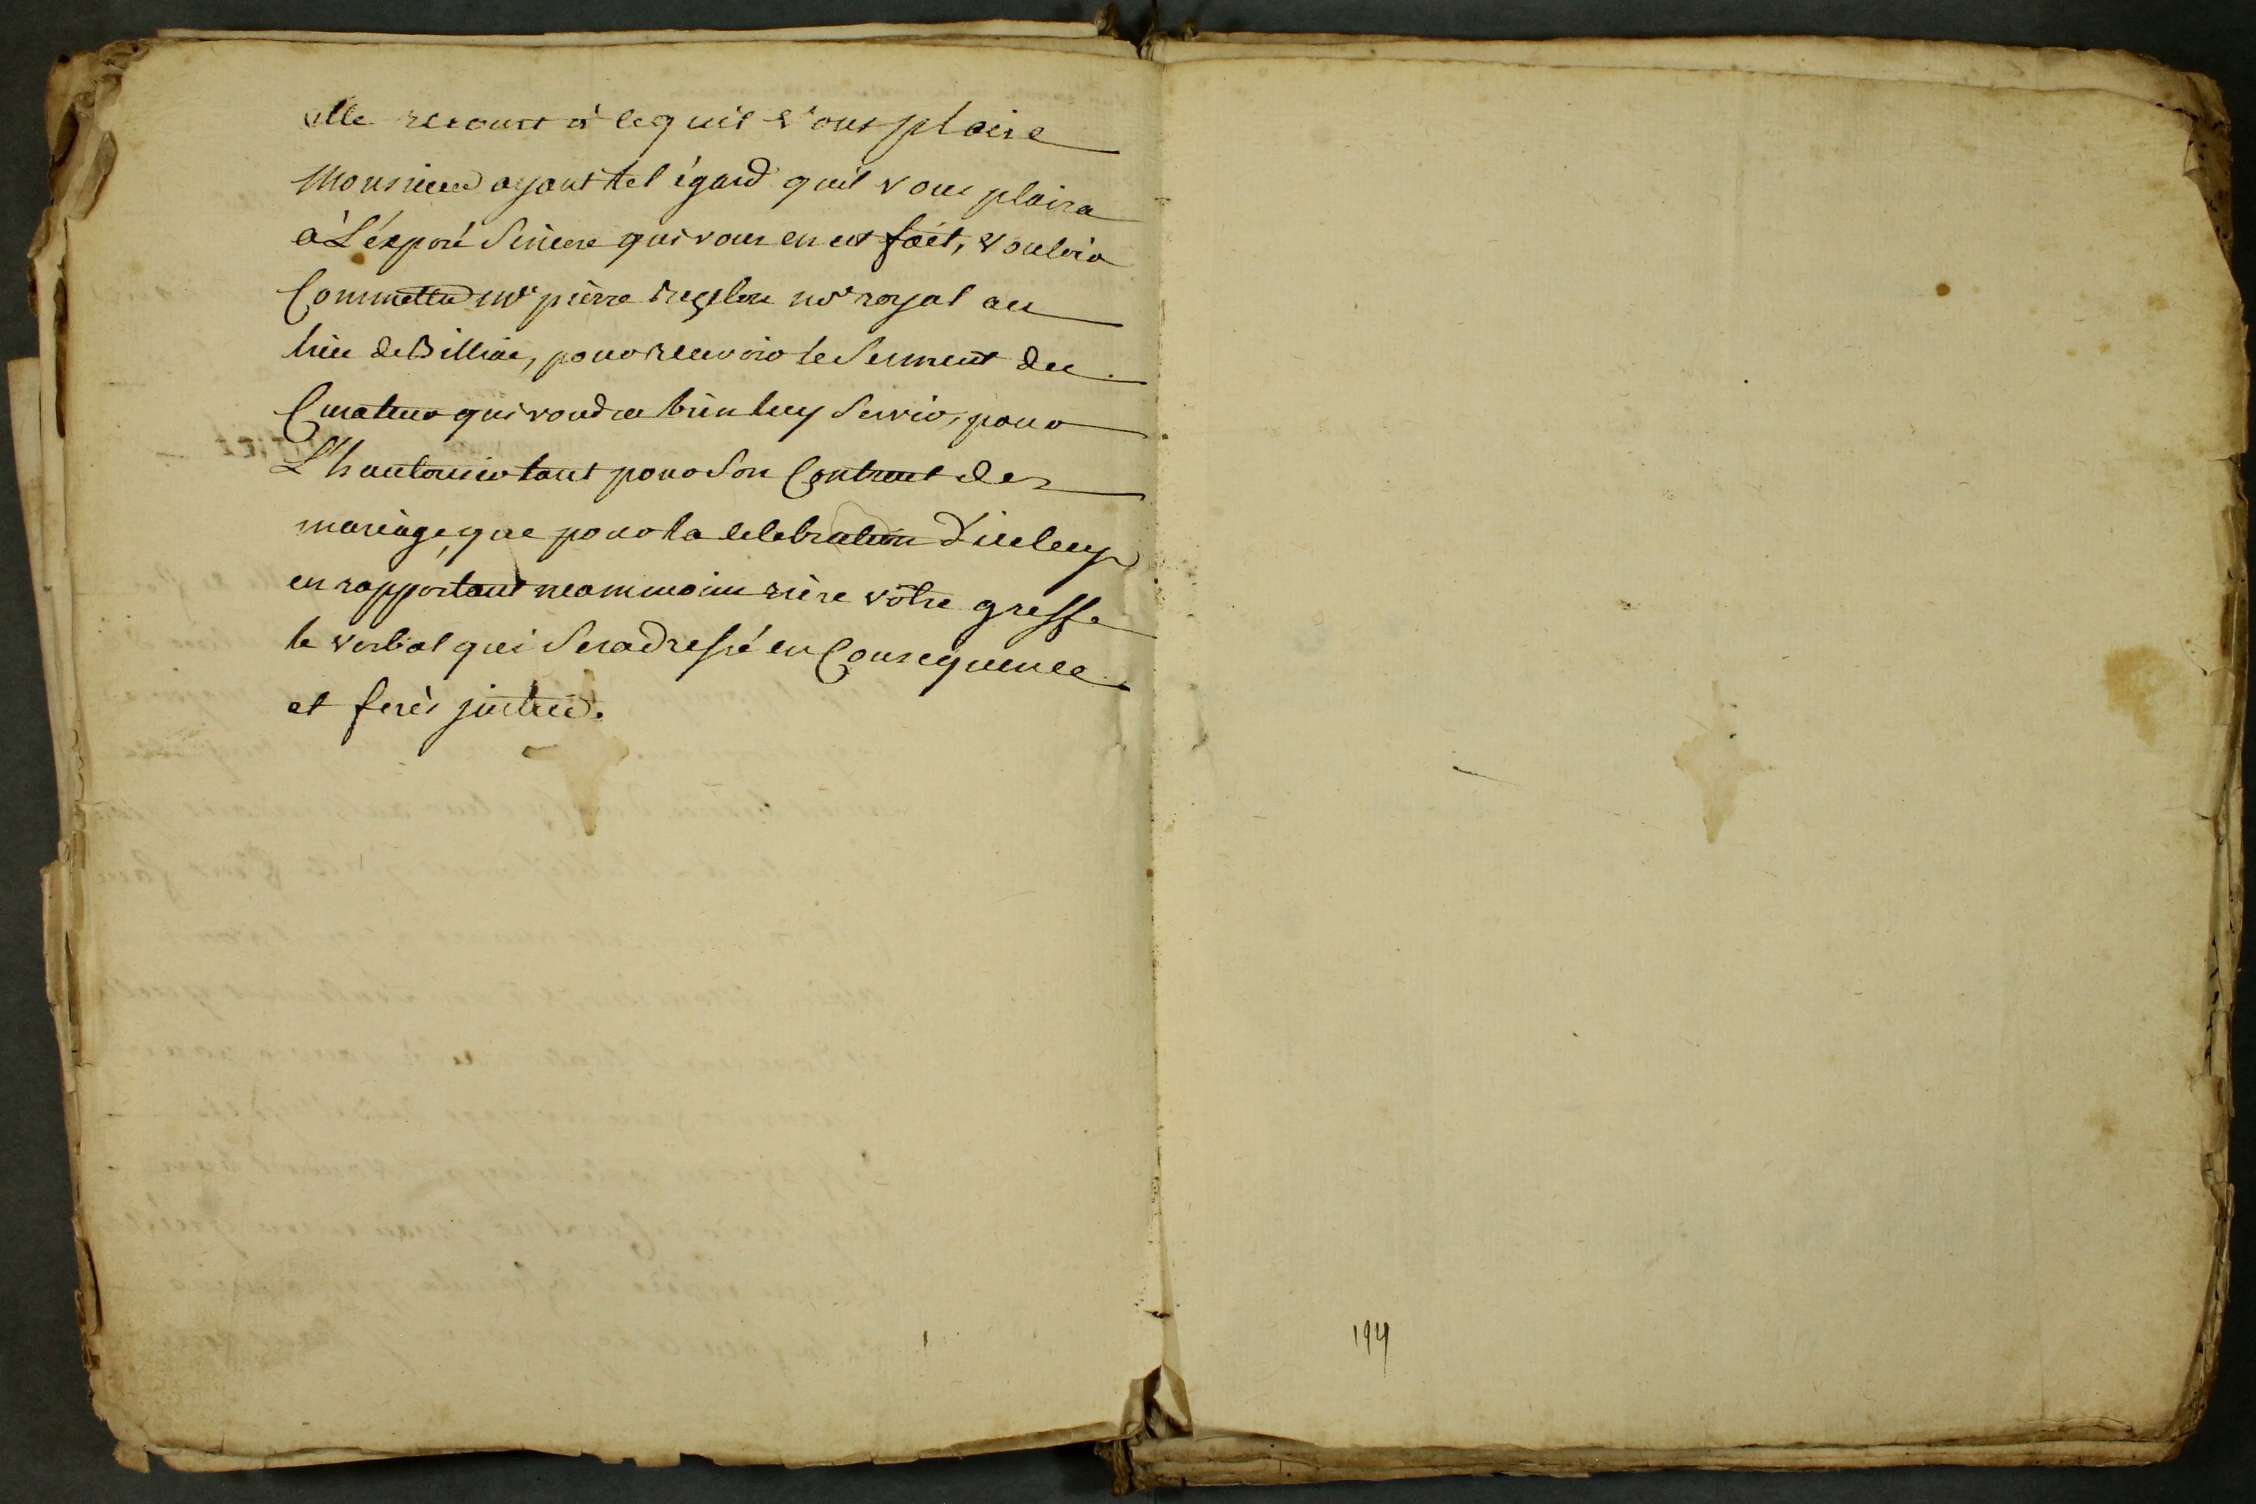 elle recourt à ce quil vous plaise
Monsieur ayant tel égard quil vous plaira
à L'éxposé Sincere qui vous en est fait, vouloir
Commettre me pierre nre royal au
lieu de Billiac, pour recevoir le Serment du
Curateur qui voudra bien luy Servir, pour
L'hautoriser tant pour Son Contract de
mariage, que pour la celebration d'iceluy
en rapportant neammoins rière vôtre greffe
le verbal qui Sera dressé en Consequence
et ferès justice.
194